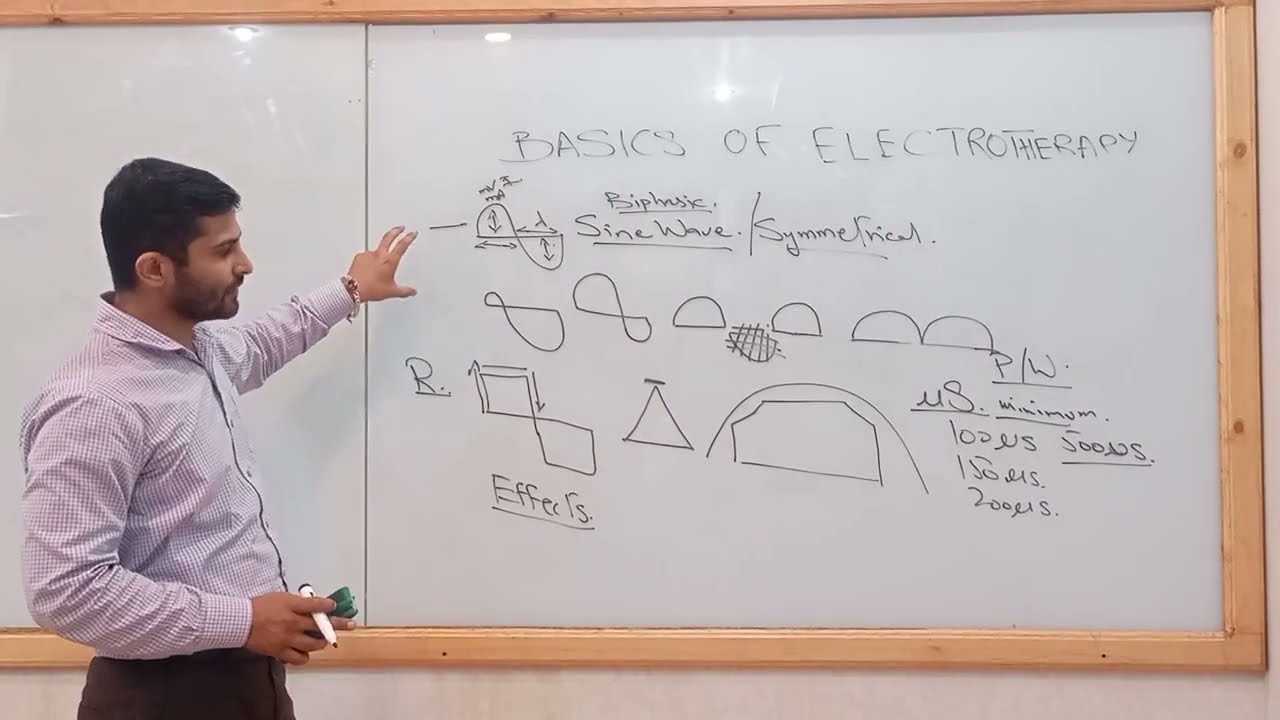 BASICS OF ELECTROTHERAPY
mV I
mA
λ
Biphasic.
Sine Wave. / Symmetrical.
P/W.
R.
μS. minimum.
100μs 500μs.
150μs.
200μs.
Effects.